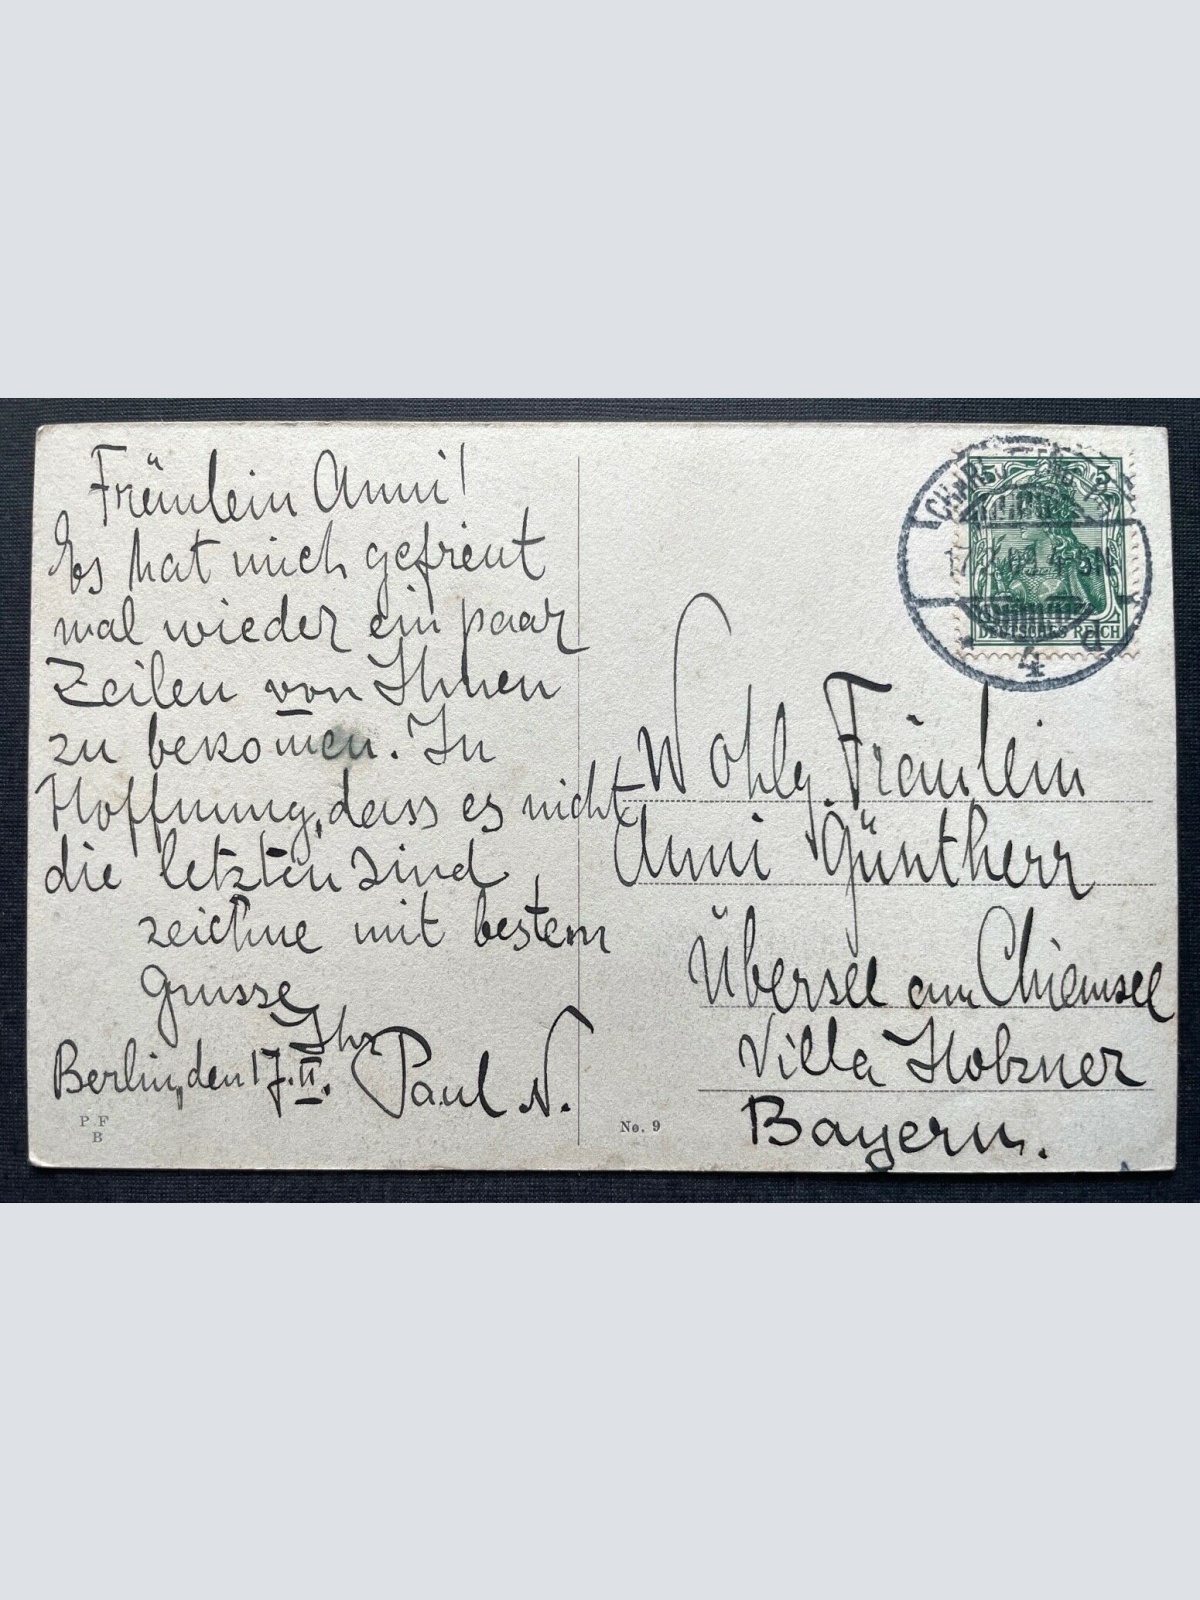 Fräulein Anni!
Es hat mich gefreut
mal wieder ein paar
Zeilen von Ihnen
zu bekom̄en. In
Hoffnung, dass es nicht
die letzten sind,
zeichne mit bestem
Grusse
Ihr
Berlin, den 17.II. Paul N.
P F
B
No. 9
5 5
DEUTSCHES REICH
4-5N
4 d
Wohlg. Fräulein
Anni Güntherr
Übersee am Chiemsee
Villa Hobzner
Bayern.